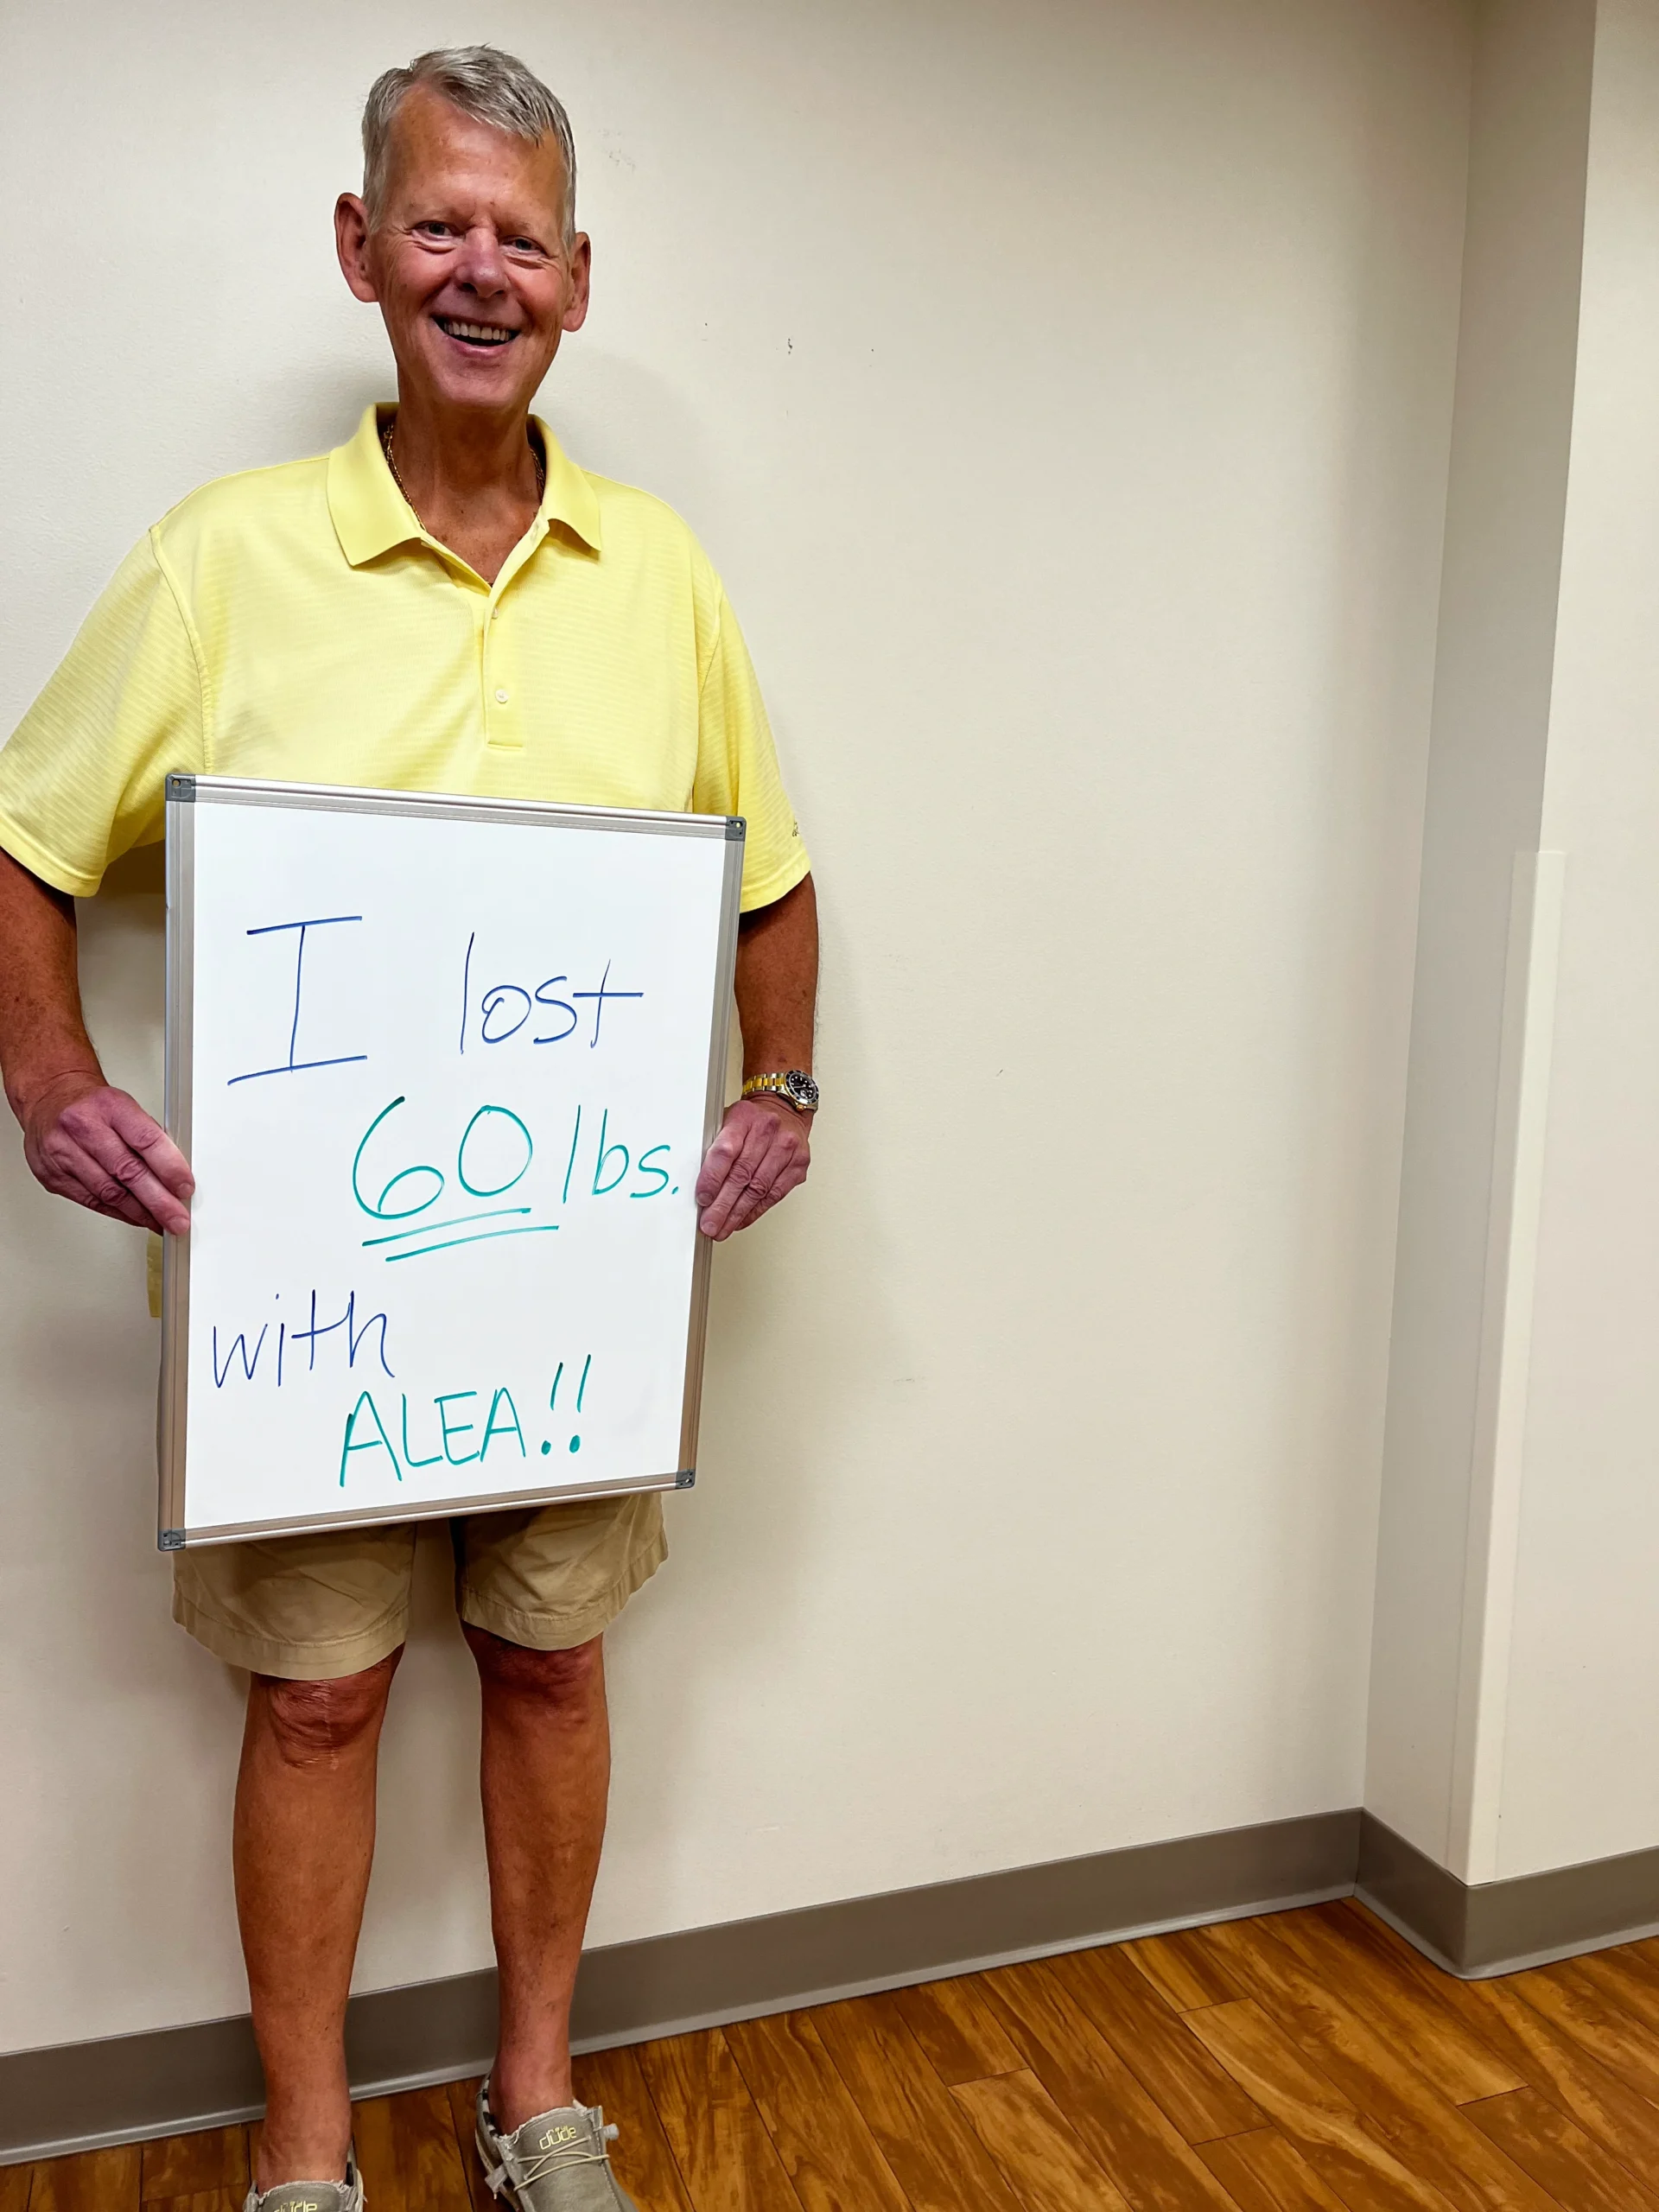 I lost
60 lbs.
with
ALEA!!
dude
dude